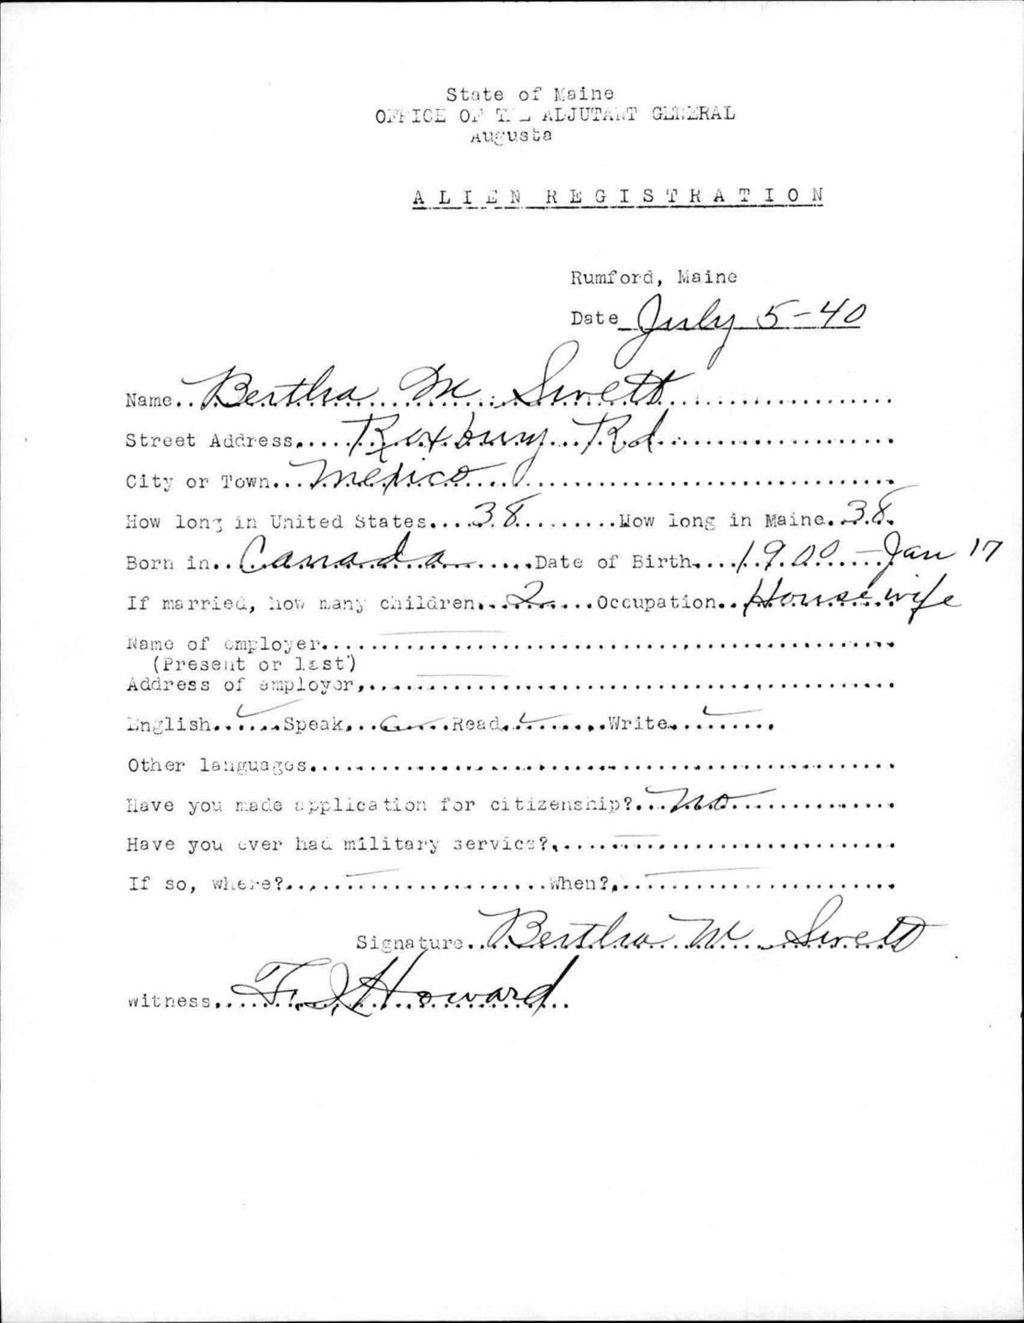 State of Maine
OFFICE OF THE ADJUTANT GENERAL
Augusta
ALIEN REGISTRATION
Rumford, Maine
Date July 5-40
Name Bertha M Swett
Street Address Roxbury Rd
City or Town Mexico
How long in United States 38 How long in Maine 38
Born in Canada Date of Birth 1900 - Jan 17
If married, how many children 2 Occupation Housewife
Name of employer
(Present or last)
Address of employer
English Speak Read Write
Other languages
Have you made application for citizenship? no
Have you ever had military service?
If so, where? When?
Signature Bertha M Swett
Witness F. J. Howard